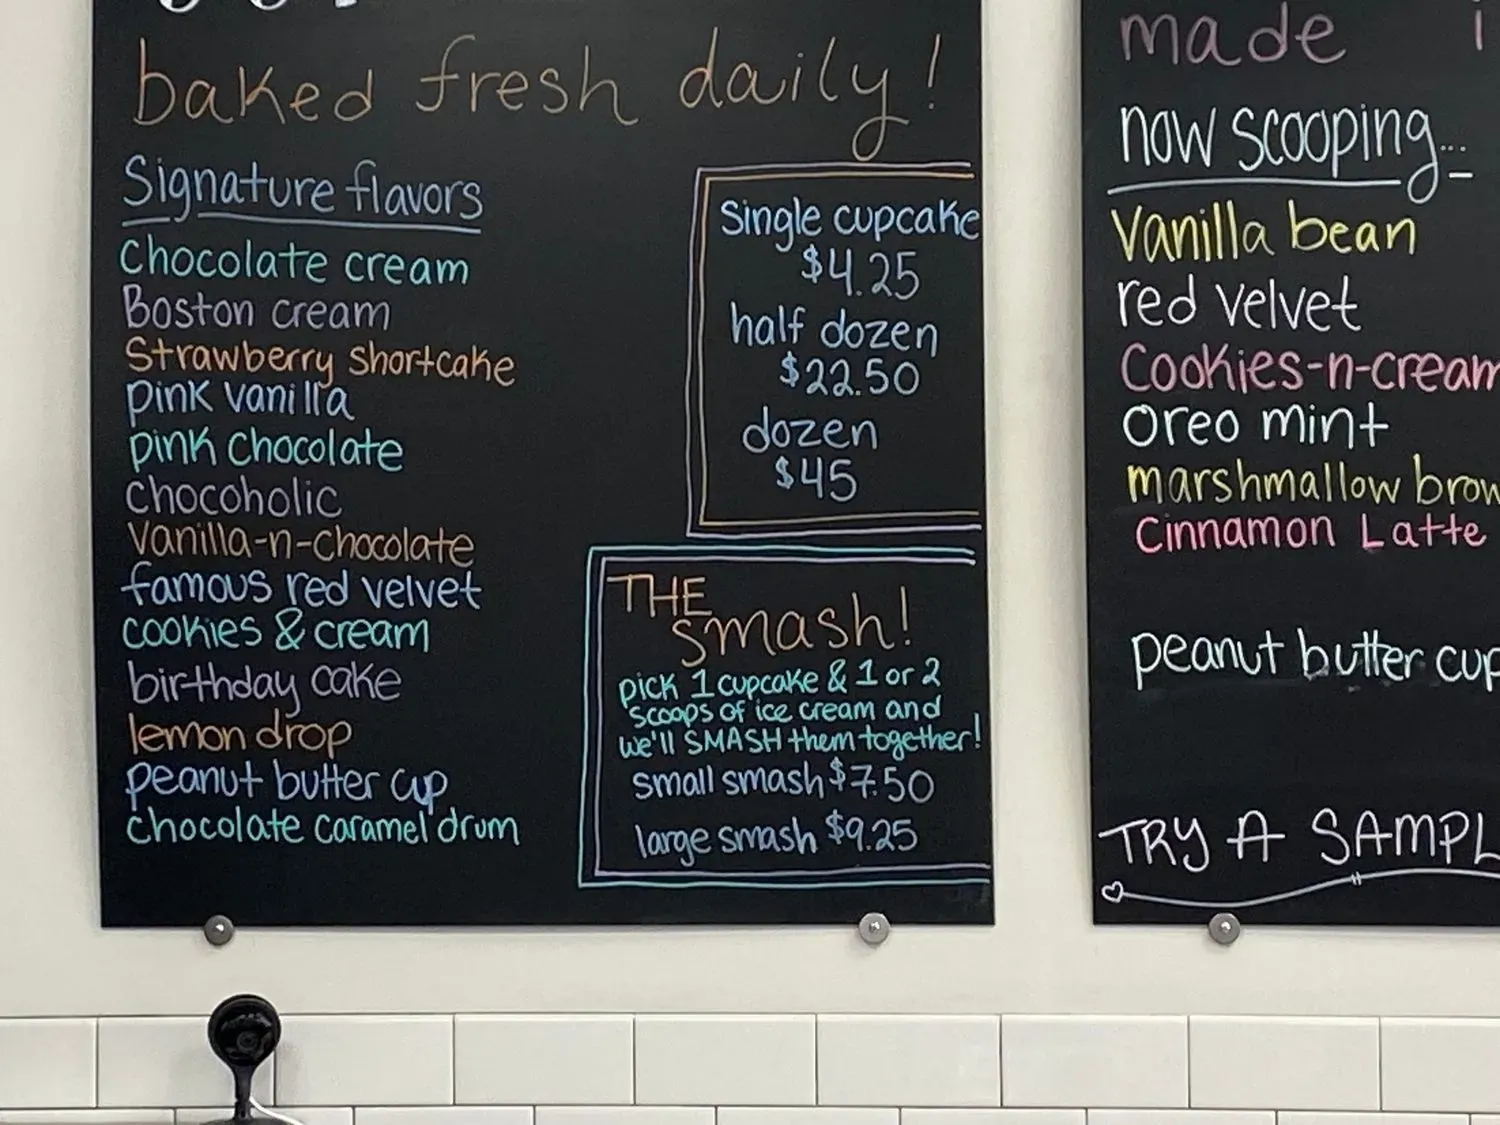 baked fresh daily!
Signature flavors
Chocolate cream
Boston cream
Strawberry shortcake
pink vanilla
pink chocolate
Chocoholic
Vanilla-n-chocolate
famous red velvet
cookies & cream
birthday cake
lemon drop
peanut butter cup
Chocolate caramel drum
Single cupcake
$4.25
half dozen
$22.50
dozen
$45
THE
smash!
pick 1 cupcake & 1 or 2
scoops of ice cream and
we'll SMASH them together!
small smash $7.50
large smash $9.25
made
now scooping...
Vanilla bean
red velvet
Cookies-n-cream
Oreo mint
marshmallow
Cinnamon Latte
peanut butter cup
TRY A